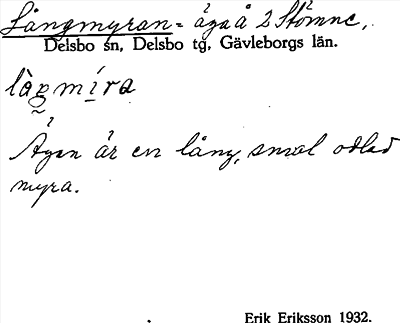 Långmyran = äga å 2 Stömne,
Delsbo sn, Delsbo tg, Gävleborgs län.
làŋmíra
Ägan är en lång, smal odlad
myra.
Erik Eriksson 1932.